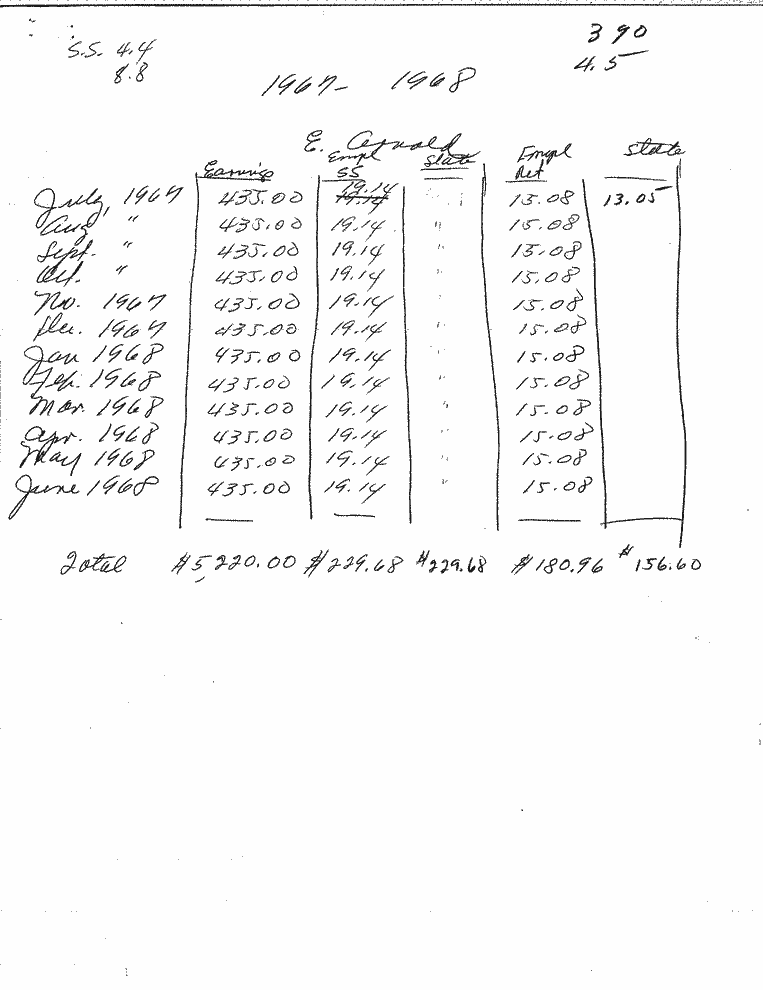 S.S. 4.4 390
8.8 4.5
1967- 1968
E. Arnold
Empl State Empl State
Earnings SS Ret
July, 1967 435.00 19.14 " 15.08 13.05
Aug " 435.00 19.14 " 15.08
Sept. " 435.00 19.14 " 15.08
Oct. " 435.00 19.14 " 15.08
No. 1967 435.00 19.14 " 15.08
Dec. 1967 435.00 19.14 " 15.08
Jan 1968 435.00 19.14 " 15.08
Feb. 1968 435.00 19.14 " 15.08
Mar. 1968 435.00 19.14 " 15.08
Apr. 1968 435.00 19.14 " 15.08
May 1968 435.00 19.14 " 15.08
June 1968 435.00 19.14 " 15.08
Total $5,220.00 $229.68 $229.68 $180.96 $156.60